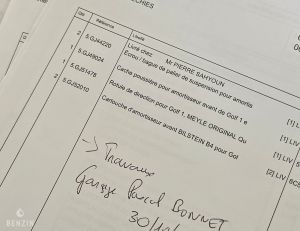 Qté Référence Libellé
Livré chez: Mr PIERRE SAHYOUN
2 5.GJ44220 Ecrou / bague de palier de suspension pour amortis
5.GJ49024 Cache poussière pour amortisseur avant de Golf 1 e
1 5.GJ51476 Rotule de direction pour Golf 1, MEYLE ORIGINAL Qu
2 5.GJ52010 Cartouche d'amortisseur avant BILSTEIN B4 pour Gol
[1] LIV
[1] LIV
[2] LIV
→ Travaux
Garage Pascal BONNET
30/
BENZIN